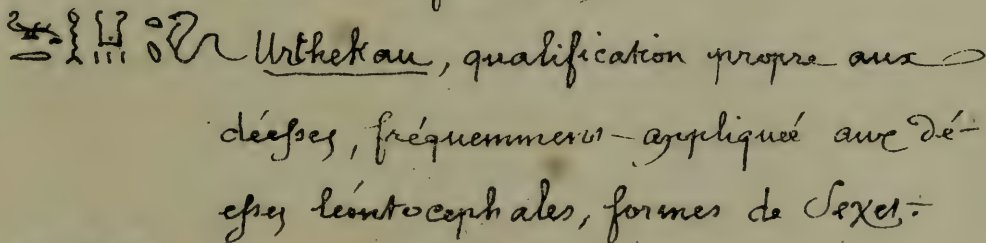 Urthekau, qualification propre aux
déesses, fréquemment appliqueé aux dé-
esses léontocephales, formes de Sexet.